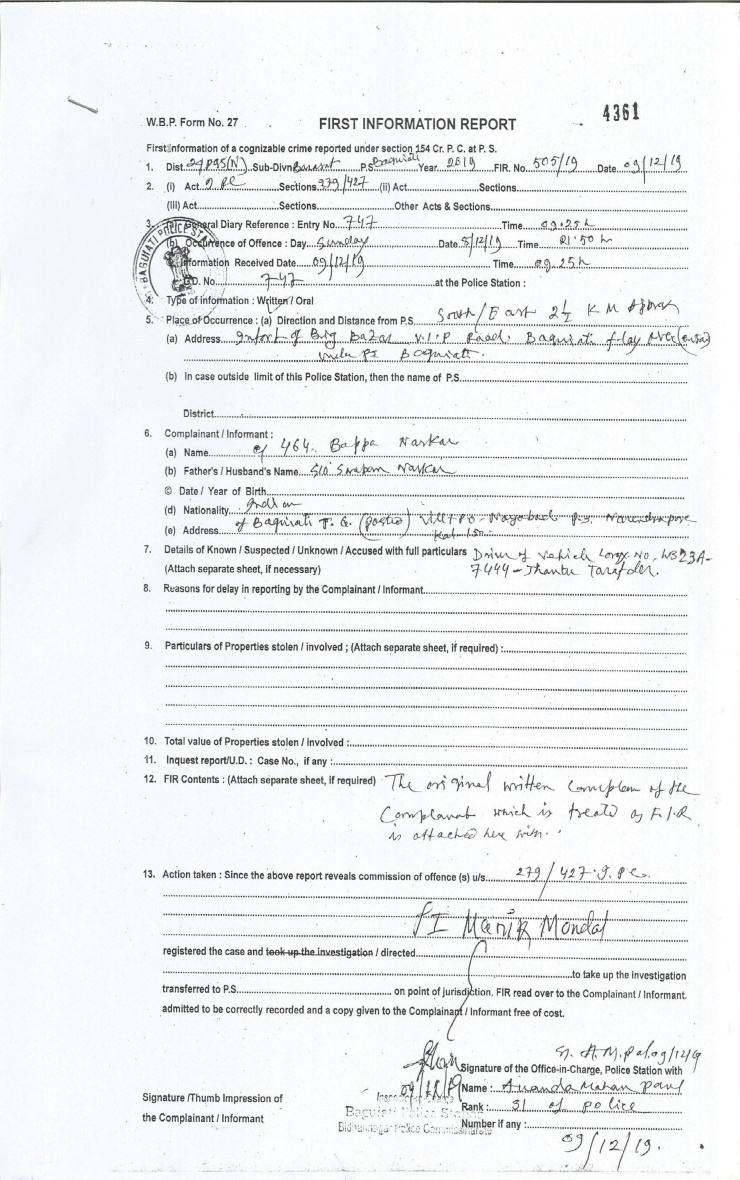 4361
W.B.P. Form No. 27 FIRST INFORMATION REPORT
First Information of a cognizable crime reported under section 154 Cr. P. C. at P. S.
1. Dist 24 PGS(N) Sub-Divn Barasat P.S Baguiati Year 2019 FIR. No. 505/19 Date 09/12/19
2. (i) Act IPC Sections 279/427 (ii) Act Sections
(iii) Act Sections Other Acts & Sections
3. General Diary Reference : Entry No. 747 Time 09.25 h
(b) Occurrence of Offence : Day Sunday Date 8/12/19 Time 21:50 h
Information Received Date 09/12/19 Time 09.25h
G.D. No. 747 at the Police Station :
BAGUIATI POLICE STA
4. Type of information : Written / Oral
5. Place of Occurrence : (a) Direction and Distance from P.S. South/East 2½ KM
(a) Address Infort of Big Bazar V.I.P Road, Baguiati
under PS Baguiati.
(b) In case outside limit of this Police Station, then the name of P.S.
District
6. Complainant / Informant :
(a) Name 464. Bappa Naskar
(b) Father's / Husband's Name S/O Naskar
© Date / Year of Birth
(d) Nationality Indian
(e) Address of Baguiati T. G.
7. Details of Known / Suspected / Unknown / Accused with full particulars Driver of vehicle No. WB23A-
(Attach separate sheet, if necessary) 7444 - Jhantu Tarafder.
8. Reasons for delay in reporting by the Complainant / Informant
9. Particulars of Properties stolen / involved ; (Attach separate sheet, if required) :
10. Total value of Properties stolen / involved :
11. Inquest report/U.D. : Case No., if any :
12. FIR Contents : (Attach separate sheet, if required) The original written complain of the
Complanat which is treated as F.I.R
is attached here with.
13. Action taken : Since the above report reveals commission of offence (s) u/s. 279/427 I.PC.
SI Manik Mondal
registered the case and took up the investigation / directed
to take up the investigation
transferred to P.S. on point of jurisdiction. FIR read over to the Complainant / Informant.
admitted to be correctly recorded and a copy given to the Complainant / Informant free of cost.
Signature of the Office-in-Charge, Police Station with
Signature/Thumb Impression of Name : Ananda Mohan Paul
the Complainant / Informant Baguiati Police Station Rank : SI of police
Bidhannagar Police Commissionerate Number if any :
09/12/19.